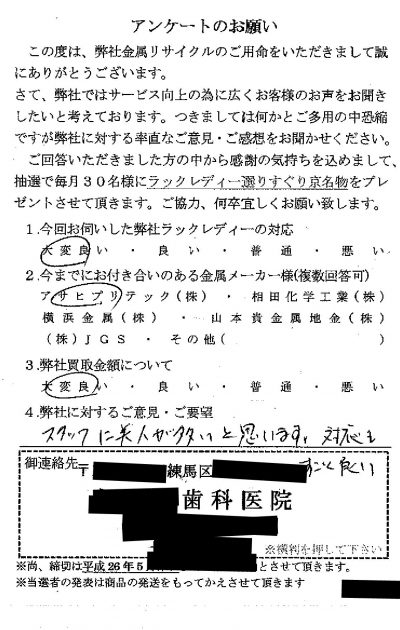 アンケートのお願い
この度は、弊社金属リサイクルのご用命をいただきまして誠
にありがとうございます。
さて、弊社ではサービス向上の為に広くお客様のお声をお聞き
したいと考えております。つきましては何かとご多用の中恐縮
ですが弊社に対する率直なご意見・ご感想をお聞かせください。
ご回答いただきました方の中から感謝の気持ちを込めまして、
抽選で毎月30名様にラックレディー選りすぐり京名物をプレ
ゼントさせて頂きます。ご協力、何卒宜しくお願い致します。
1.今回お伺いした弊社ラックレディーの対応
大変良い・良い・普通・悪い
2.今までにお付き合いのある金属メーカー様(複数回答可)
アサヒプリテック(株)・相田化学工業(株)
横浜金属(株)・山本貴金属地金(株)
(株)JGS・その他( )
3.弊社買取金額について
大変良い・良い・普通・悪い
4.弊社に対するご意見・ご要望
スタッフに美人が多いと思います。対応も
すごく良い
御連絡先 〒
練馬区
歯科医院
※横判を押して下さい
※尚、締切は平成26年5月 とさせて頂きます。
※当選者の発表は商品の発送をもってかえさせて頂きます